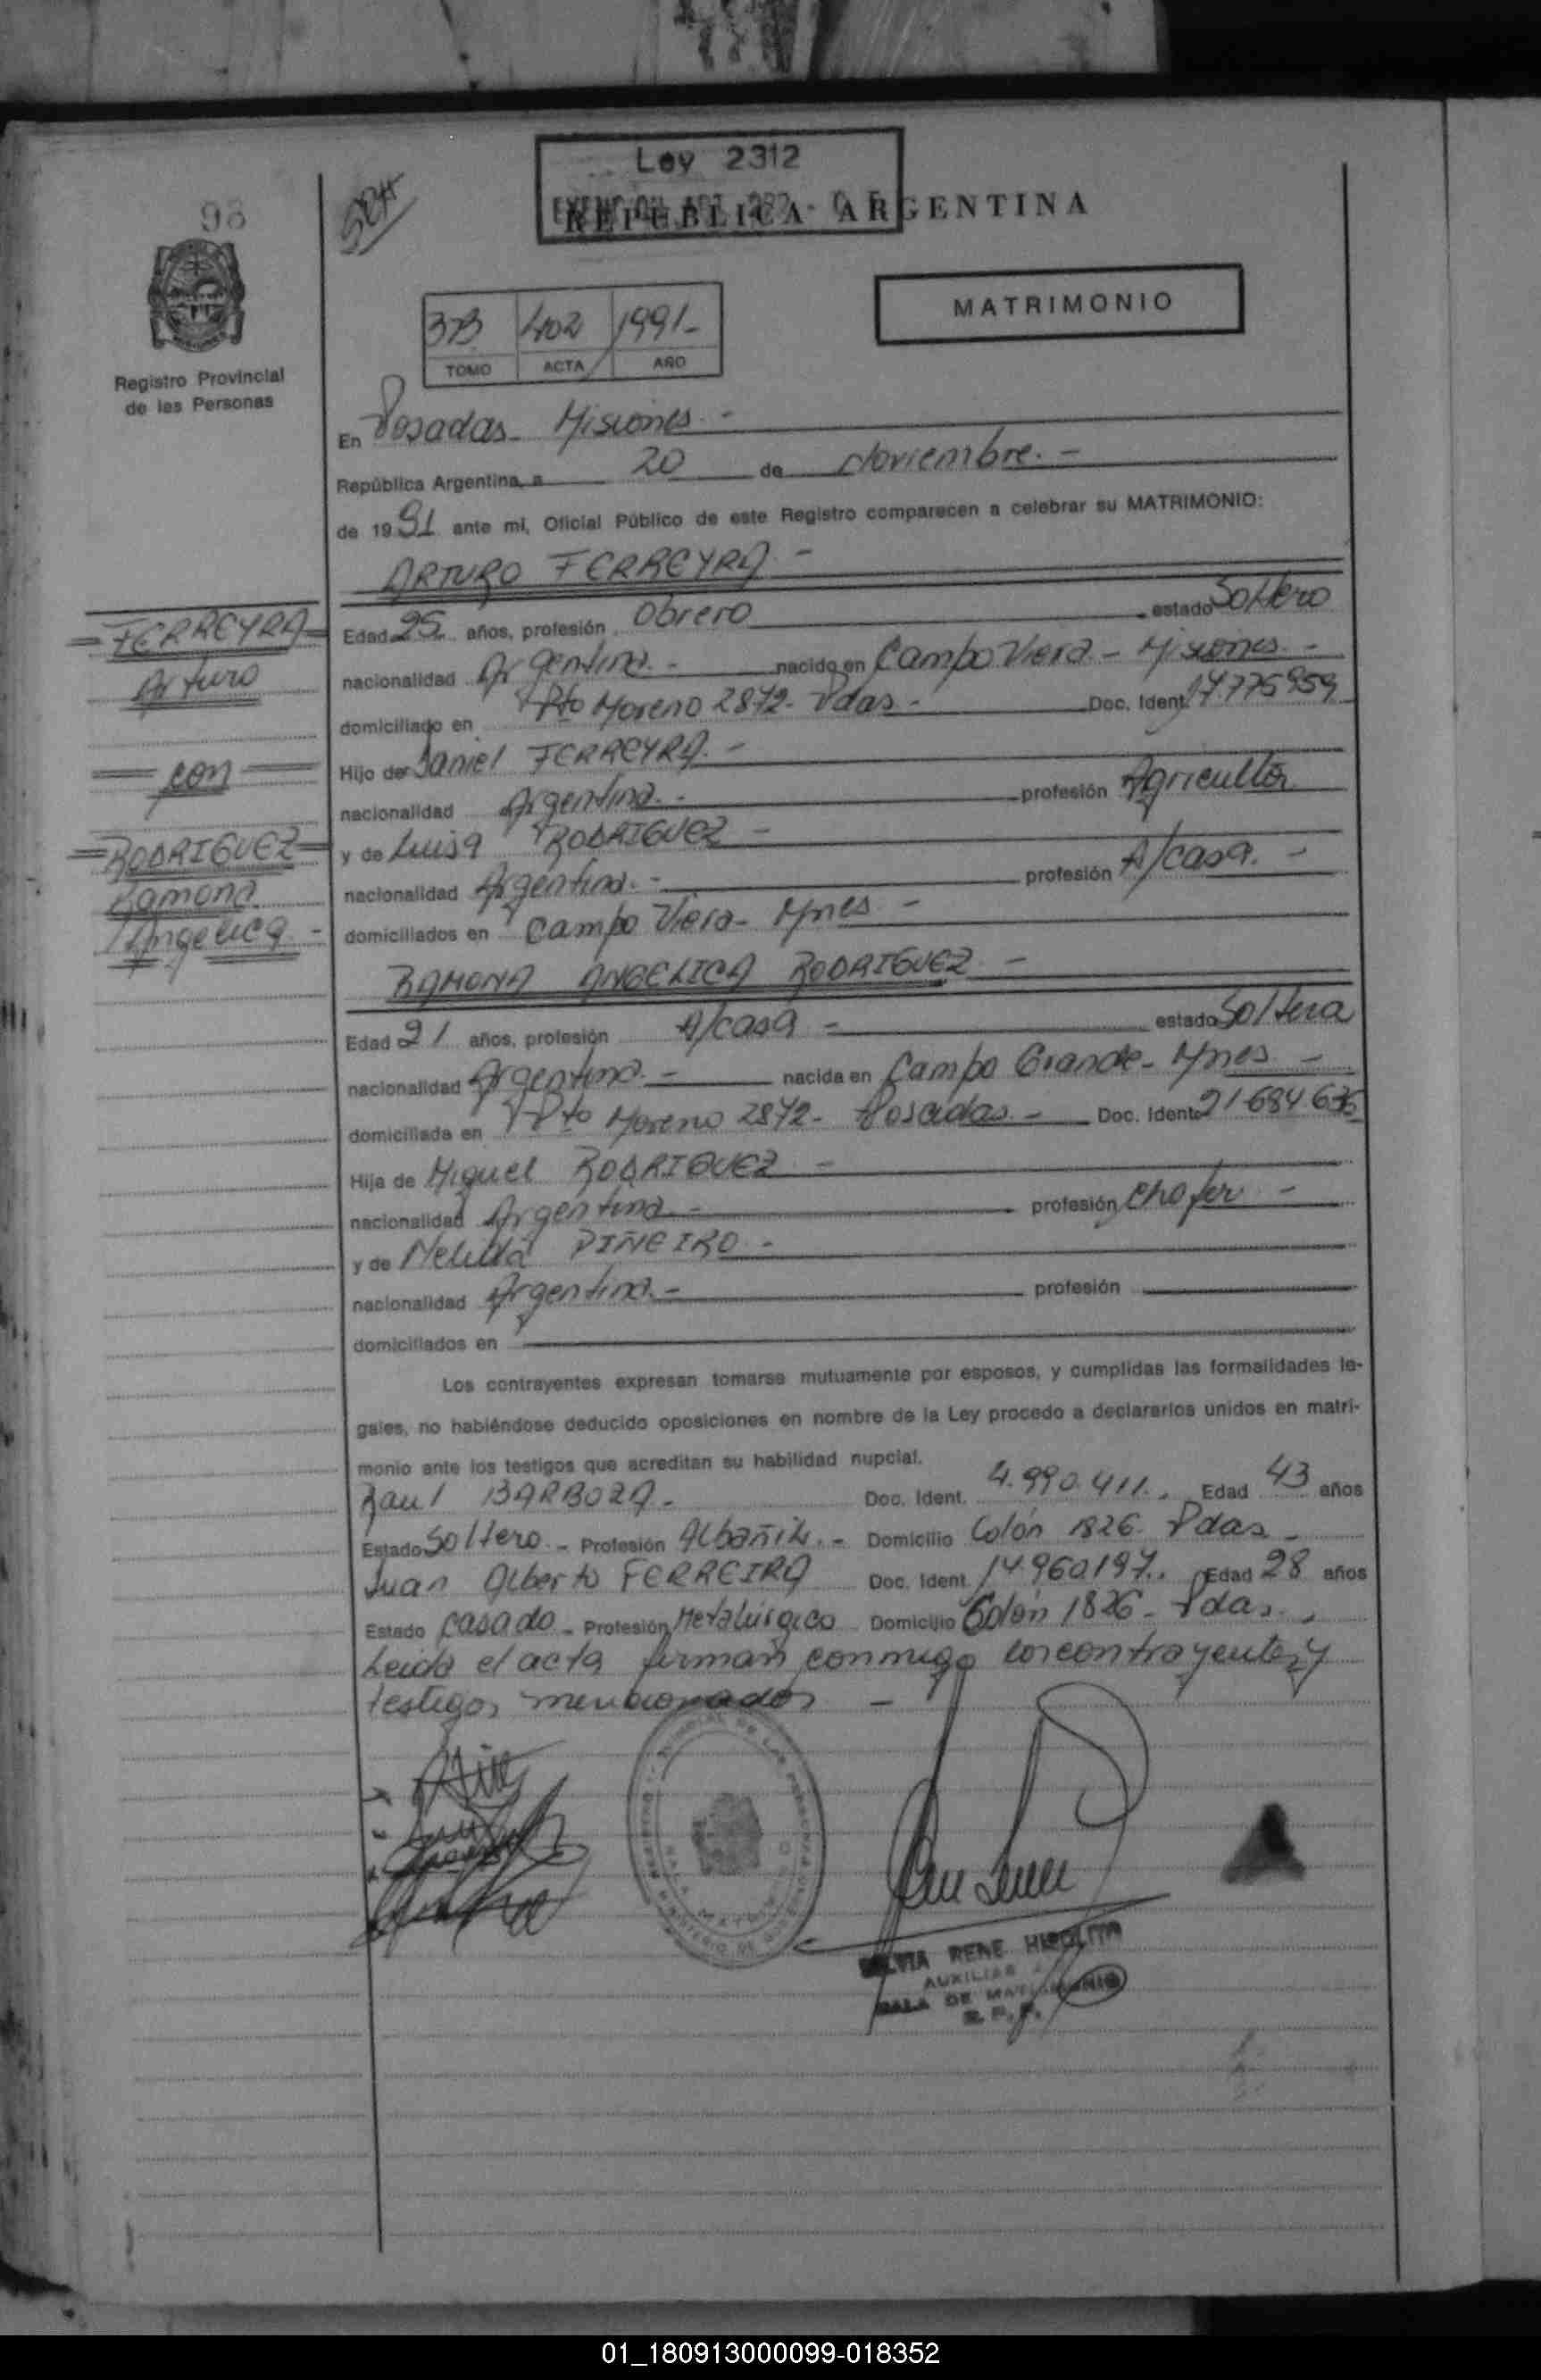 Ley 2312
REPUBLICA ARGENTINA
98
MATRIMONIO
373 402 1991-
TOMO ACTA AÑO
Registro Provincial
de las Personas
En Posadas - Misiones. -
República Argentina, a 20 de Noviembre. -
de 1991 ante mi, Oficial Público de este Registro comparecen a celebrar su MATRIMONIO:
ARTURO FERREYRA -
FERREYRA
Arturo
con
RODRIGUEZ
Ramona
Angelica -
Edad 25 años, profesión Obrero estado Soltero
nacionalidad Argentina. - nacido en Campo Viera - Misiones. -
domiciliado en Pto Moreno 2872 - Pdas. - Doc. Ident. 17.775959
Hijo de Daniel FERREYRA. -
nacionalidad Argentina. - profesión Agricultor
y de Luisa RODRIGUEZ -
nacionalidad Argentina. - profesión A/casa. -
domiciliados en Campo Viera - Mnes -
RAMONA ANGELICA RODRIGUEZ -
Edad 21 años, profesión A/casa - estado Soltera
nacionalidad Argentina. - nacida en Campo Grande - Mnes -
domiciliada en Pto Moreno 2872 - Posadas. - Doc. Ident. 21684636
Hija de Miguel RODRIGUEZ -
nacionalidad Argentina. - profesión chofer -
y de Nelida PIÑEIRO -
nacionalidad Argentina. - profesión
domiciliados en
Los contrayentes expresan tomarse mutuamente por esposos, y cumplidas las formalidades le-
gales, no habiéndose deducido oposiciones en nombre de la Ley procedo a declararlos unidos en matri-
monio ante los testigos que acreditan su habilidad nupcial.
Raul BARBOZA - Doc. Ident. 4.990.411. Edad 43 años
Estado Soltero. - Profesión Albañil. - Domicilio Colón 1826 Pdas -
Juan Alberto FERREIRA Doc. Ident. 14.960197. Edad 28 años
Estado Casado - Profesión Metalúrgico Domicilio Colón 1826 - Pdas.
Leida el acta firman conmigo los contrayentes y
testigos mencionados -
SILVIA RENE HIPOLITO
AUXILIAR
SALA DE MATRIMONIO
R. P. P.
01_180913000099-018352